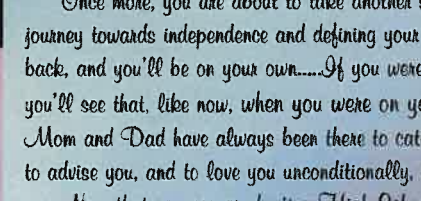 Once more, you are about to take another
journey towards independence and defining your
back, and you'll be on your own.....If you were
you'll see that, like now, when you were on
Mom and Dad have always been there to
to advise you, and to love you unconditionally,